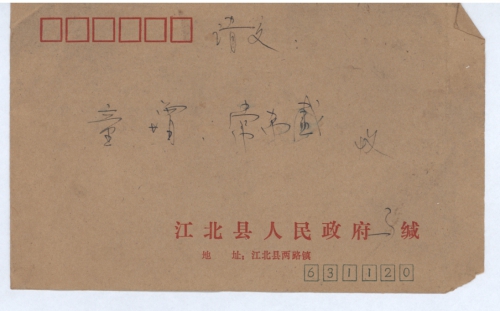 请交：
童 常 收
江北县人民政府 缄
地 址：江北县两路镇
631120